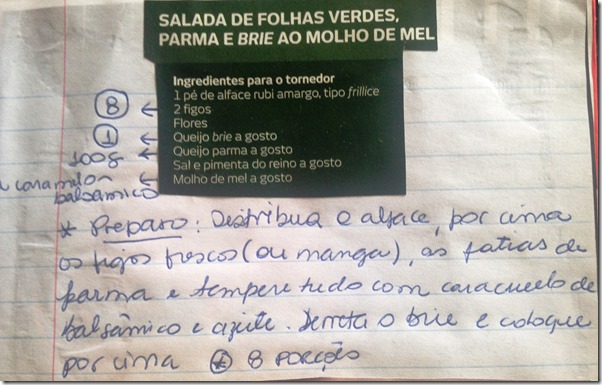 SALADA DE FOLHAS VERDES,
PARMA E BRIE AO MOLHO DE MEL
Ingredientes para o tornedor
1 pé de alface rubi amargo, tipo frillice
8 ← 2 figos
Flores
1 ← Queijo brie a gosto
100g ← Queijo parma a gosto
Sal e pimenta do reino a gosto
← Molho de mel a gosto
balsâmico
* Preparo: Distribua o alface, por cima
os figos frescos (ou manga), as fatias de
parma e tempere tudo com caramelo de
balsâmico e azeite. Derreta o brie e coloque
por cima * 8 PORÇÕES